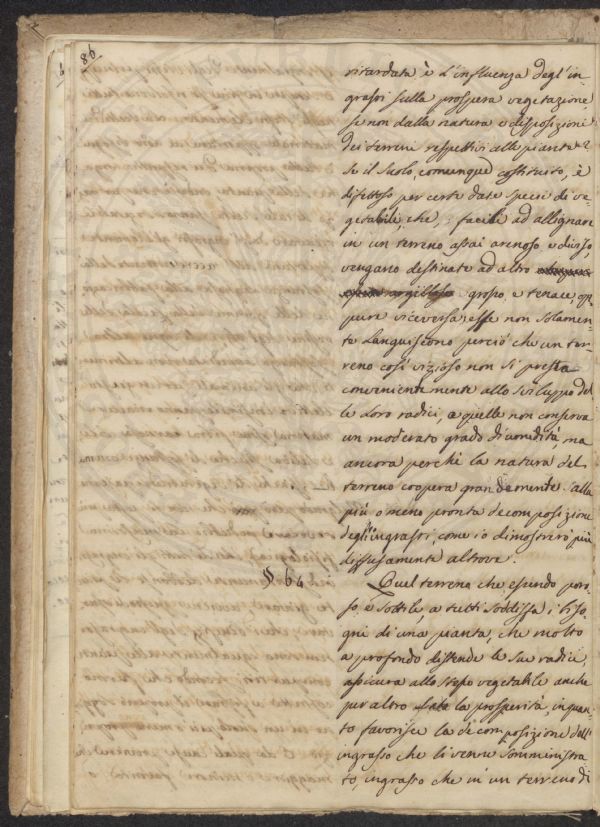 98
ritardata è l'influenza degl'in-
grassi sulla prospera vegetazione,
se non dalla natura e disposizione
dei terreni respettivi alle piante?
Se il suolo, comunque costituito, è
difettoso per certe date specie di ve-
getabili, che, facili ad allignare
in un terreno assai arenoso e sciolto,
vengano destinate ad altro
grosso e tenace op-
pure viceversa; esse non solamen-
te languiscono perciò che un ter-
reno così vizioso non si presta
convenientemente allo sviluppo del-
le loro radici, a quelle non conserva
un moderato grado di umidità, ma
ancora perchè la natura del
terreno coopera grandemente alla
più o meno pronta decomposizione
degl'ingrassi, come io dimostrerò più
diffusamente altrove.
§ 64
Quel terreno che essendo poro-
so, e sottile, a tutti soddisfa i biso-
gni di una pianta, che molto
a profondo distende le sue radici,
assicura allo stesso vegetabile anche
per altro lato la prosperità, inquan-
to favorisce la decomposizione dell'
ingrasso che li venne somministra-
to, ingrasso che in un terreno di